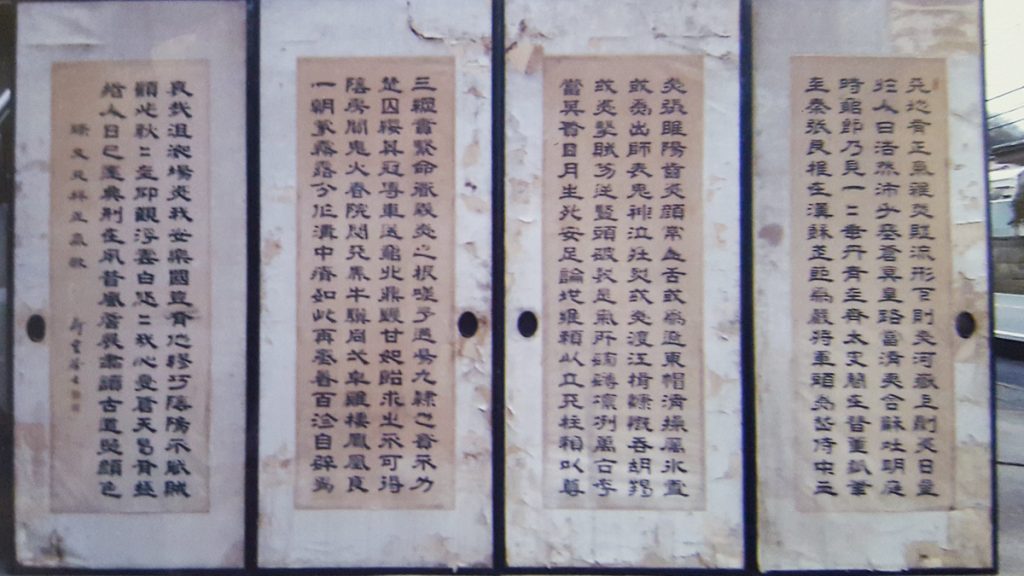 天地有正氣雜然賦流形下則為河嶽上則為日星
於人曰浩然沛乎塞蒼冥皇路當清夷含龢吐明庭
時窮節乃見一〻垂丹青在齊太史簡在晉董狐筆
在秦張良椎在漢蘇武節為嚴將軍頭為嵇侍中血
為張睢陽齒為顏常山舌或為遼東帽清操厲冰雪
或為出師表鬼神泣壯烈或為渡江楫慷慨吞胡羯
或為擊賊笏逆豎頭破裂是氣所磅礴凜冽萬古存
當其貫日月生死安足論地維賴以立天柱賴以尊
三綱實繫命道義為之根嗟予遘陽九隸也實不力
楚囚纓其冠傳車送窮北鼎鑊甘如飴求之不可得
陰房闃鬼火春院閟天黑牛驥同一皁雞棲鳳凰食
一朝蒙霧露分作溝中瘠如此再寒暑百沴自辟易
哀哉沮洳場為我安樂國豈有他繆巧陰陽不能賊
顧此耿〻在仰觀浮雲白悠〻我心憂蒼天曷有極
哲人日已遠典刑在夙昔風簷展書讀古道照顏色
錄文文祥正氣歌